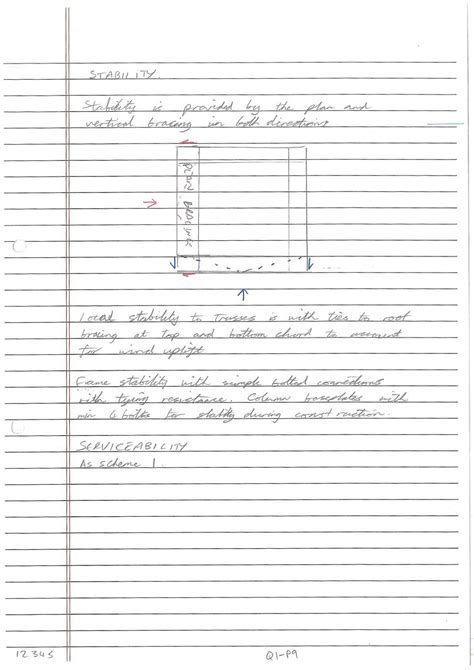 STABILITY.
Stability is provided by the plan and
vertical bracing in both directions
PLAN BRACING
Local stability to trusses is with ties to roof
bracing at top and bottom chord to account
for wind uplift
Frame stability with simple bolted connections
with tying resistance. Column baseplates with
min 4 bolts for stability during construction.
SERVICEABILITY
As scheme 1.
12345
Q1-P9